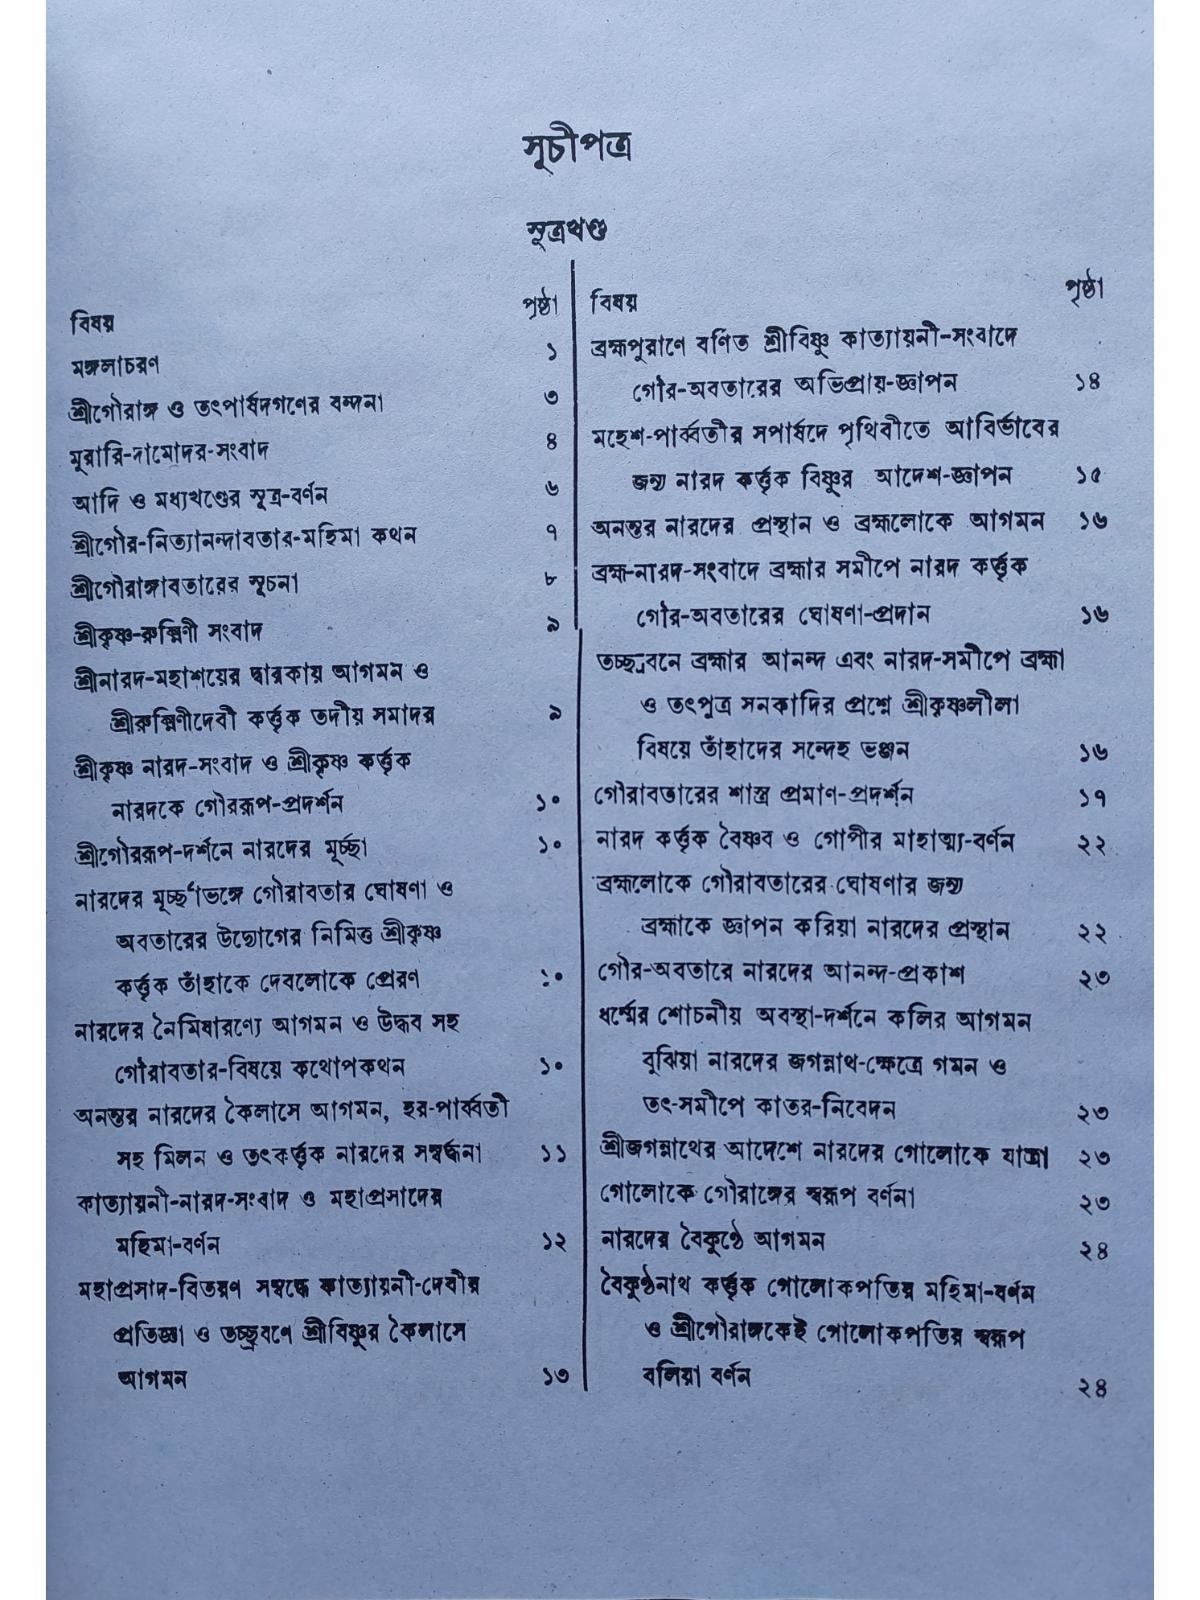 সূচীপত্র
সূত্রখণ্ড
বিষয় পৃষ্ঠা
মঙ্গলাচরণ ১
শ্রীগৌরাঙ্গ ও তৎপার্ষদগণের বন্দনা ৩
মুরারি-দামোদর-সংবাদ ৪
আদি ও মধ্যখণ্ডের সূত্র-বর্ণন ৬
শ্রীগৌর-নিত্যানন্দাবতার-মহিমা কথন ৭
শ্রীগৌরাঙ্গাবতারের সূচনা ৮
শ্রীকৃষ্ণ-রুক্মিণী সংবাদ ৯
শ্রীনারদ-মহাশয়ের দ্বারকায় আগমন ও
শ্রীরুক্মিণীদেবী কর্ত্তৃক তদীয় সমাদর ৯
শ্রীকৃষ্ণ নারদ-সংবাদ ও শ্রীকৃষ্ণ কর্ত্তৃক
নারদকে গৌররূপ-প্রদর্শন ১০
শ্রীগৌররূপ-দর্শনে নারদের মূর্চ্ছা ১০
নারদের মূর্চ্ছাভঙ্গে গৌরাবতার ঘোষণা ও
অবতারের উদ্যোগের নিমিত্ত শ্রীকৃষ্ণ
কর্ত্তৃক তাঁহাকে দেবলোকে প্রেরণ ১০
নারদের নৈমিষারণ্যে আগমন ও উদ্ধব সহ
গৌরাবতার-বিষয়ে কথোপকথন ১০
অনন্তর নারদের কৈলাসে আগমন, হর-পার্ব্বতী
সহ মিলন ও তৎকর্ত্তৃক নারদের সম্বর্দ্ধনা ১১
কাত্যায়নী-নারদ-সংবাদ ও মহাপ্রসাদের
মহিমা-বর্ণন ১২
মহাপ্রসাদ-বিতরণ সম্বন্ধে কাত্যায়নী-দেবীর
প্রতিজ্ঞা ও তচ্ছ্রবণে শ্রীবিষ্ণুর কৈলাসে
আগমন ১৩
বিষয় পৃষ্ঠা
ব্রহ্মপুরাণে বর্ণিত শ্রীবিষ্ণু কাত্যায়নী-সংবাদে
গৌর-অবতারের অভিপ্রায়-জ্ঞাপন ১৪
মহেশ-পার্ব্বতীর সপার্ষদে পৃথিবীতে আবির্ভাবের
জন্য নারদ কর্ত্তৃক বিষ্ণুর আদেশ-জ্ঞাপন ১৫
অনন্তর নারদের প্রস্থান ও ব্রহ্মলোকে আগমন ১৬
ব্রহ্ম-নারদ-সংবাদে ব্রহ্মার সমীপে নারদ কর্ত্তৃক
গৌর-অবতারের ঘোষণা-প্রদান ১৬
তচ্ছ্রবনে ব্রহ্মার আনন্দ এবং নারদ-সমীপে ব্রহ্মা
ও তৎপুত্র সনকাদির প্রশ্নে শ্রীকৃষ্ণলীলা
বিষয়ে তাঁহাদের সন্দেহ ভঞ্জন ১৬
গৌরাবতারের শাস্ত্র প্রমাণ-প্রদর্শন ১৭
নারদ কর্ত্তৃক বৈষ্ণব ও গোপীর মাহাত্ম্য-বর্ণন ২২
ব্রহ্মলোকে গৌরাবতারের ঘোষণার জন্য
ব্রহ্মাকে জ্ঞাপন করিয়া নারদের প্রস্থান ২২
গৌর-অবতারে নারদের আনন্দ-প্রকাশ ২৩
ধর্ম্মের শোচনীয় অবস্থা-দর্শনে কলির আগমন
বুঝিয়া নারদের জগন্নাথ-ক্ষেত্রে গমন ও
তৎ-সমীপে কাতর-নিবেদন ২৩
শ্রীজগন্নাথের আদেশে নারদের গোলোকে যাত্রা ২৩
গোলোকে গৌরাঙ্গের স্বরূপ বর্ণনা ২৩
নারদের বৈকুণ্ঠে আগমন ২৪
বৈকুণ্ঠনাথ কর্ত্তৃক গোলোকপতির মহিমা-বর্ণন
ও শ্রীগৌরাঙ্গকেই গোলোকপতির স্বরূপ
বলিয়া বর্ণন ২৪